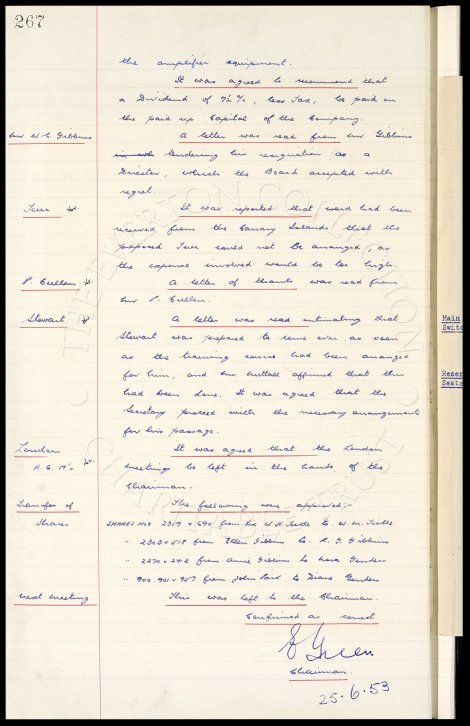 267
the amplifier equipment.
It was agreed to recommend that
a Dividend of 7½%, less Tax, be paid on
the paid up Capital of the Company.
Mr W. C. Gibbins
A letter was read from Mr Gibbins
tendering his resignation as a
Director, which the Board accepted with
regret.
Tour
It was reported that word had been
received from the Canary Islands that the
proposed Tour could not be arranged, as
the expense involved would be too high.
P. Cullen.
A letter of thanks was read from
Mr P. Cullen.
Stewart
A letter was read intimating that
Stewart was prepared to come over as soon
as the training course had been arranged
for him, and Mr Nuttall affirmed that this
had been done. It was agreed that the
Secretary proceed with the necessary arrangements
for his passage.
London
A.G.M's
It was agreed that the London
meetings be left in the hands of the
Chairman.
Transfer of
Shares
The following were approved:-
SHARES NO 2319 & 690 from W. H. to W. M.
" 2303 & 518 from Ellen Gibbins to R. J. Gibbins
" 2270 & 242 from Annie Gibbins to Genders
" 900.901 & 957 from John to Diane Genders
next meeting
This was left to the Chairman.
Confirmed as correct
E Green
Chairman.
25.6.53
Main
Switc
Reser
Seats
THE EVERTON COLLECTION
CHARITABLE TRUST